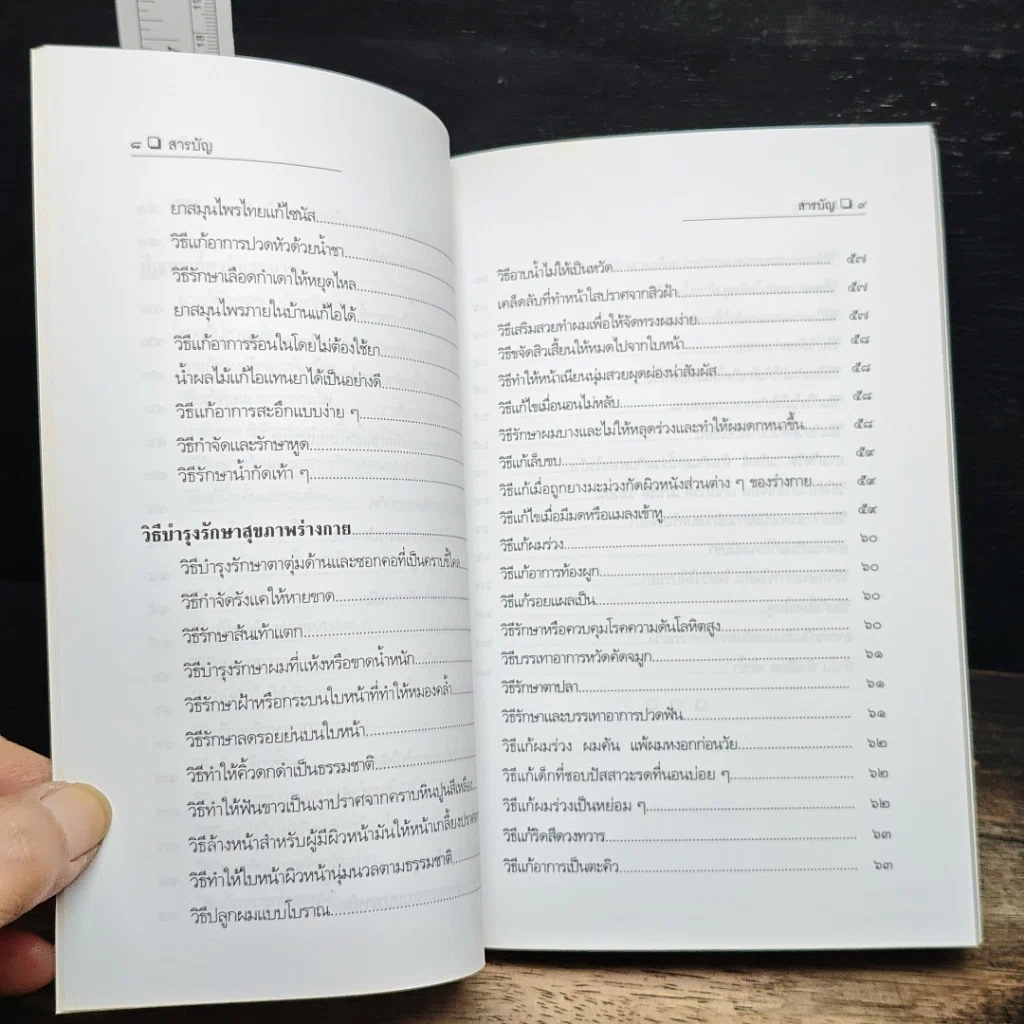 ๘ ❏ สารบัญ
ยาสมุนไพรไทยแก้ไซนัส
วิธีแก้อาการปวดหัวด้วยน้ำชา
วิธีรักษาเลือดกำเดาให้หยุดไหล
ยาสมุนไพรภายในบ้านแก้ไอได้
วิธีแก้อาการร้อนในโดยไม่ต้องใช้ยา
น้ำผลไม้แก้ไอแทนยาได้เป็นอย่างดี
วิธีแก้อาการสะอึกแบบง่าย ๆ
วิธีกำจัดและรักษาหูด
วิธีรักษาน้ำกัดเท้า ๆ
วิธีบำรุงรักษาสุขภาพร่างกาย
วิธีบำรุงรักษาตาตุ่มด้านและซอกคอที่เป็นคราบขี้ไคล
วิธีกำจัดรังแคให้หายขาด
วิธีรักษาส้นเท้าแตก
วิธีบำรุงรักษาผมที่แห้งหรือขาดน้ำหนัก
วิธีรักษาฝ้าหรือกระบนใบหน้าที่ทำให้หมองคล้ำ
วิธีรักษาลดรอยย่นบนใบหน้า
วิธีทำให้คิ้วดกดำเป็นธรรมชาติ
วิธีทำให้ฟันขาวเป็นเงาปราศจากคราบหินปูนสีเหลือง
วิธีล้างหน้าสำหรับผู้มีผิวหน้ามันให้หน้าเกลี้ยงปราศจาก
วิธีทำให้ใบหน้าผิวหน้านุ่มนวลตามธรรมชาติ
วิธีปลูกผมแบบโบราณ
สารบัญ ❏ ๙
วิธีอาบน้ำไม่ให้เป็นหวัด ๕๗
เคล็ดลับที่ทำหน้าใสปราศจากสิวฝ้า ๕๗
วิธีเสริมสวยทำผมเพื่อให้จัดทรงผมง่าย ๕๗
วิธีขจัดสิวเสี้ยนให้หมดไปจากใบหน้า ๕๘
วิธีทำให้หน้าเนียนนุ่มสวยผุดผ่องน่าสัมผัส ๕๘
วิธีแก้ไขเมื่อนอนไม่หลับ ๕๘
วิธีรักษาผมบางและไม่ให้หลุดร่วงและทำให้ผมดกหนาขึ้น ๕๘
วิธีแก้เล็บขบ ๕๙
วิธีแก้เมื่อถูกยางมะม่วงกัดผิวหนังส่วนต่าง ๆ ของร่างกาย ๕๙
วิธีแก้ไขเมื่อมีมดหรือแมลงเข้าหู ๕๙
วิธีแก้ผมร่วง ๖๐
วิธีแก้อาการท้องผูก ๖๐
วิธีแก้รอยแผลเป็น ๖๐
วิธีรักษาหรือควบคุมโรคความดันโลหิตสูง ๖๐
วิธีบรรเทาอาการหวัดคัดจมูก ๖๑
วิธีรักษาตาปลา ๖๑
วิธีรักษาและบรรเทาอาการปวดฟัน ๖๑
วิธีแก้ผมร่วง ผมคัน แพ้ผมหงอกก่อนวัย ๖๒
วิธีแก้เด็กที่ชอบปัสสาวะรดที่นอนบ่อย ๆ ๖๒
วิธีแก้ผมร่วงเป็นหย่อม ๆ ๖๒
วิธีแก้ริดสีดวงทวาร ๖๓
วิธีแก้อาการเป็นตะคิว ๖๓